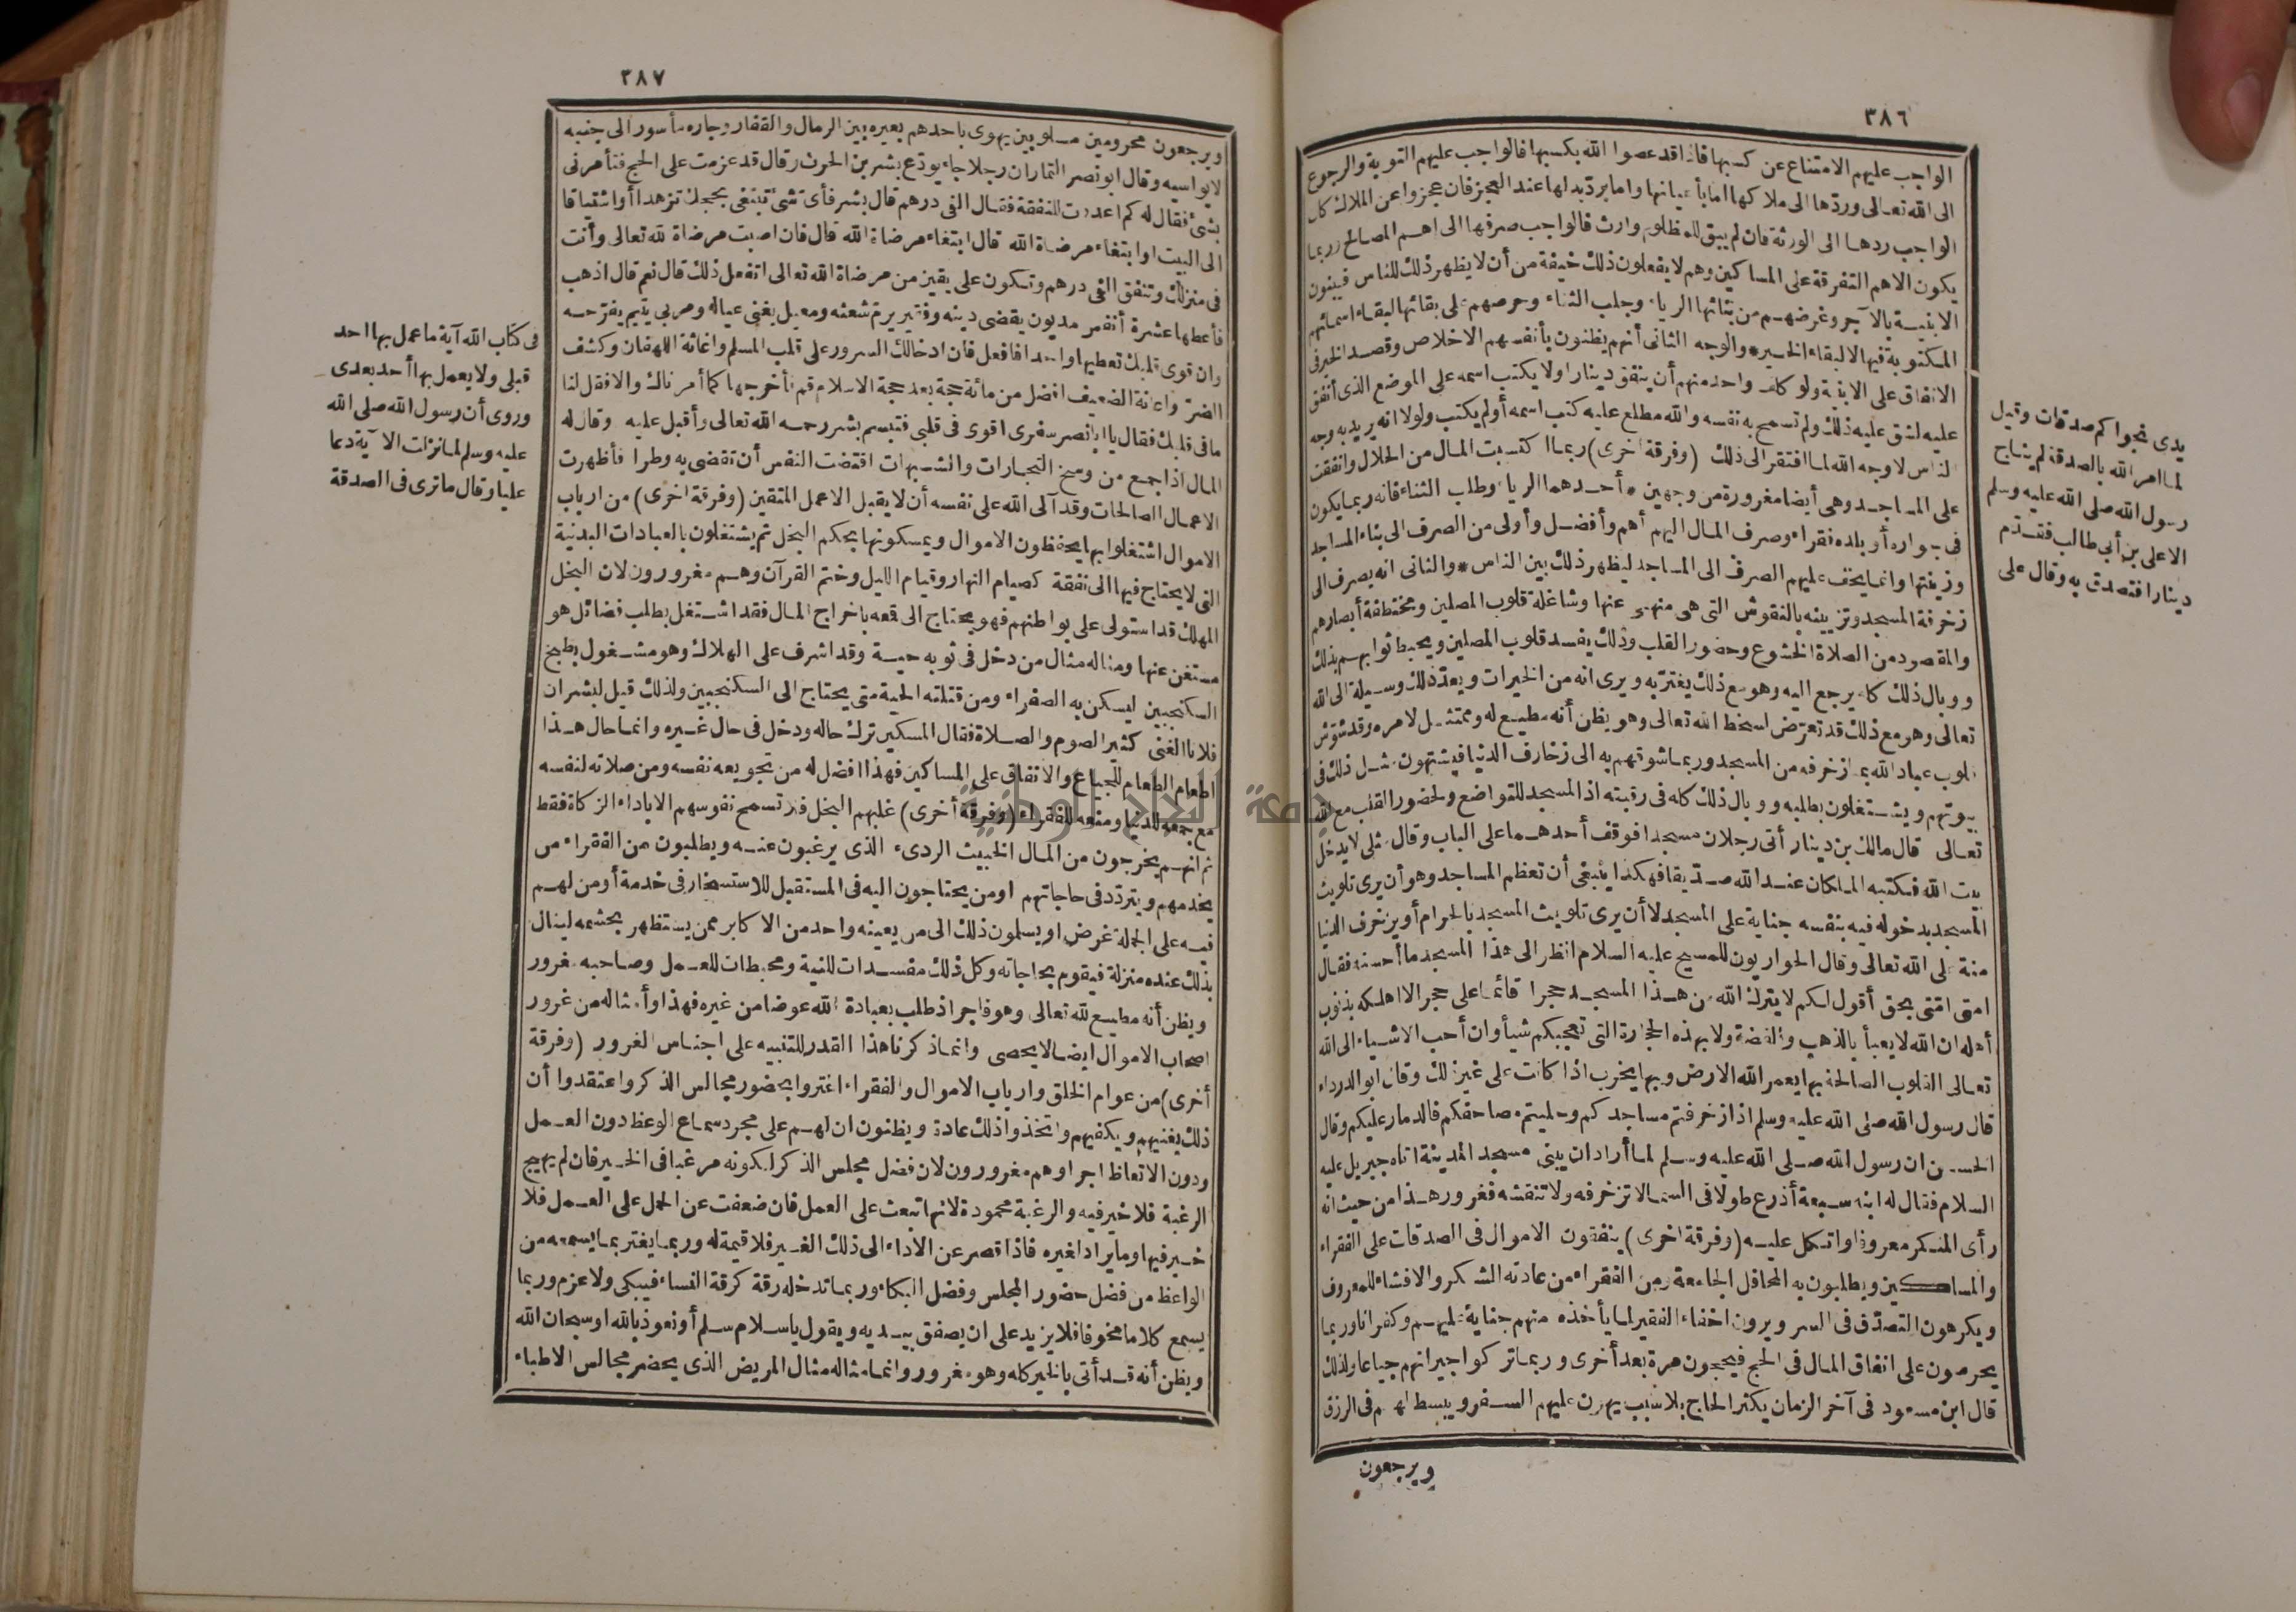 ٣٨٦
الواجب عليهم الامتناع عن كسبها فاذا قد عصوا الله بكسبها فالواجب عليهم التوبة والرجوع
الى الله تعالى وردّها الى ملاكها اما بأعيانها واما بردّ بدلها عند العجز فان عجزوا عن الملاك كان
الواجب ردها الى الورثة فان لم يبق للمظلوم وارث فالواجب صرفها الى اهم المصالح وربما
يكون الاهم التفرقة على المساكين وهم لا يفعلون ذلك خيفة من أن لا يظهر ذلك للناس فيبنون
الابنية بالآجر وغرضهم من بنائها الرياء وجلب الثناء وحرصهم على بقائها لبقاء اسمائهم
المكتوبة فيها لا لبقاء الخير * والوجه الثانى أنهم يظنون بأنفسهم الاخلاص وقصد الخير فى
الانفاق على الابنية ولو كلف واحد منهم أن ينفق دينارا ولا يكتب اسمه على الموضع الذى أنفق
عليه لشق عليه ذلك ولم تسمح به نفسه والله مطلع عليه كتب اسمه أولم يكتب ولولا انه يريد به وجه
الناس لا وجه الله لما افتقر الى ذلك (وفرقة أخرى) ربما اكتسبت المال من الحلال وانفقت
على المساجد وهى أيضا مغرورة من وجهين * أحدهما الرياء وطلب الثناء فانه ربما يكون
فى جواره أو بلده فقراء وصرف المال اليهم أهم وأفضل وأولى من الصرف الى بناء المساجد
وزينتها وانما يخف عليهم الصرف الى المساجد ليظهر ذلك بين الناس * والثانى انه يصرف الى
زخرفة المسجد وتزيينه بالنقوش التى هى منهى عنها وشاغلة قلوب المصلين ومختطفة أبصارهم
والمقصود من الصلاة الخشوع وحضور القلب وذلك يفسد قلوب المصلين ويحبط ثوابهم بذلك
ووبال ذلك كله يرجع اليه وهو مع ذلك يغترّ به ويرى انه من الخيرات ويعدّ ذلك وسيلة الى الله
تعالى وهو مع ذلك قد تعرّض لسخط الله تعالى وهو يظن أنه مطيع له وممتثل لامره وقد شوّش
قلوب عباد الله بما زخرفه من المسجد وربما شوقهم به الى زخارف الدنيا فيشتهون مثل ذلك فى
بيوتهم ويشتغلون بطلبه ووبال ذلك كله فى رقبته اذ المسجد للتواضع ولحضور القلب مع الله
تعالى قال مالك بن دينار أتى رجلان مسجدا فوقف أحدهما على الباب وقال مثلى لا يدخل
بيت الله فكتبه الملكان عند الله صدّيقا فهكذا ينبغى أن تعظم المساجد وهو أن يرى تلويث
المسجد بدخوله فيه بنفسه جناية على المسجد لا أن يرى تلويث المسجد بالحرام أو بزخرف الدنيا
منة على الله تعالى وقال الحواريون للمسيح عليه السلام انظر الى هذا المسجد ما أحسنه فقال
امتى امتى بحق أقول لكم لا يترك الله من هذا المسجد حجرا قائما على حجر الا اهلكه بذنوب
أهله ان الله لا يعبأ بالذهب والفضة ولا بهذه الحجارة التى تعجبكم شيأ وان أحب الاشياء الى الله
تعالى القلوب الصالحة بها يعمر الله الارض وبها يخرب اذا كانت على غير ذلك وقال ابو الدرداء
قال رسول الله صلى الله عليه وسلم اذا زخرفتم مساجدكم وحليتم مصاحفكم فالدمار عليكم وقال
الحسن ان رسول الله صلى الله عليه وسلم لما أراد ان يبنى مسجد المدينة اتاه جبريل عليه
السلام فقال له ابنه سبعة أذرع طولا فى السما لا تزخرفه ولا تنقشه فغرور هذا من حيث انه
رأى المنكر معروفا واتكل عليه (وفرقة اخرى) ينفقون الاموال فى الصدقات على الفقراء
والمساكين ويطلبون به المحافل الجامعة ومن الفقراء من عادته الشكر والافشاء للمعروف
ويكرهون التصدّق فى السر ويرون اخفاء الفقير لما يأخذه منهم جناية عليهم وكفرانا وربما
يحرصون على انفاق المال فى الحج فيحجون مرة بعد أخرى وربما تركوا جيرانهم جياعا ولذلك
قال ابن مسعود فى آخر الزمان يكثر الحاج بلا سبب يهون عليهم السفر ويبسط لهم فى الرزق
ويرجعون
يدى نجواكم صدقات وقيل
لما امر الله بالصدقة لم يناج
رسول الله صلى الله عليه وسلم
الا على بن أبى طالب فقدّم
دينارا فتصدق به وقال على
٣٨٧
ويرجعون محرومين مسلوبين يهوى باحدهم بعيره بين الرمال والقفار وجاره مأسور الى جنبه
لا يواسيه وقال ابو نصر التمار ان رجلا جاء يودّع بشر بن الحرث وقال قد عزمت على الحج فتأمرنى
بشئ فقال له كم اعددت للنفقة فقال الفى درهم قال بشر فأىّ شئ تبتغى بحجك تزهدا أو اشتياقا
الى البيت او ابتغاء مرضاة الله قال ابتغاء مرضاة الله قال فان اصبت مرضاة لله تعالى وأنت
فى منزلك وتنفق الفى درهم وتكون على يقين من مرضاة الله تعالى اتفعل ذلك قال نعم قال اذهب
فأعطها عشرة أنفس مديون يقضى دينه وفقير يرم شعثه ومعيل يغنى عياله ومربى يتيم يفرّحه
وان قوى قلبك تعطيها واحدا فافعل فان ادخالك السرور على قلب المسلم واغاثة اللهفان وكشف
الضرّ واعانة الضعيف افضل من مائة حجة بعد حجة الاسلام قم فأخرجها كما أمرناك والا فقل لنا
ما فى قلبك فقال يا ابا نصر سفرى اقوى فى قلبى فتبسم بشر رحمه الله تعالى وأقبل عليه وقال له
المال اذا جمع من وسخ التجارات والشبهات اقتضت النفس أن تقضى به وطرا فأظهرت
الاعمال الصالحات وقد آلى الله على نفسه أن لا يقبل الا عمل المتقين (وفرقة اخرى) من ارباب
الاموال اشتغلوا بها يحفظون الاموال ويمسكونها بحكم البخل ثم يشتغلون بالعبادات البدنية
التى لا يحتاج فيها الى نفقة كصيام النهار وقيام الليل وختم القرآن وهم مغرورون لان البخل
المهلك قد استولى على بواطنهم فهو يحتاج الى قمعه باخراج المال فقد اشتغل بطلب فضائل هو
مستغن عنها ومثاله مثال من دخل فى ثوبه حية وقد اشرف على الهلاك وهو مشغول بطبخ
السكنجبين ليسكن به الصفراء ومن قتلته الحية متى يحتاج الى السكنجبين ولذلك قيل لبشر ان
فلانا الغنى كثير الصوم والصلاة فقال المسكين ترك حاله ودخل فى حال غيره وانما حال هذا
اطعام الطعام للجياع والانفاق على المساكين فهذا افضل له من تجويعه نفسه ومن صلاته لنفسه
مع جمعه للدنيا ومنعه للفقراء (وفرقة أخرى) غلبهم البخل فلا تسمح نفوسهم الا باداء الزكاة فقط
ثم انهم يخرجون من المال الخبيث الردىء الذى يرغبون عنه ويطلبون من الفقراء من
يخدمهم ويتردّد فى حاجاتهم او من يحتاجون اليه فى المستقبل للاستسخار فى خدمة أو من لهم
فيه على الجملة غرض او يسلمون ذلك الى من يعينه واحد من الاكابر ممن يستظهر بحشمه لينال
بذلك عنده منزلة فيقوم بحاجاته وكل ذلك مفسدات للنية ومحبطات للعمل وصاحبه مغرور
ويظن أنه مطيع لله تعالى وهو فاجر اذ طلب بعبادة الله عوضا من غيره فهذا وأمثاله من غرور
اصحاب الاموال ايضا لا يحصى وانما ذكرنا هذا القدر للتنبيه على اجناس الغرور (وفرقة
أخرى) من عوام الخلق وارباب الاموال والفقراء اغتروا بحضور مجالس الذكر واعتقدوا أن
ذلك يغنيهم ويكفيهم واتخذوا ذلك عادة ويظنون ان لهم على مجرد سماع الوعظ دون العمل
ودون الاتعاظ اجرا وهم مغرورون لان فضل مجلس الذكر لكونه مرغبا فى الخير فان لم يهيج
الرغبة فلا خير فيه والرغبة محمودة لانها تبعث على العمل فان ضعفت عن الحمل على العمل فلا
خير فيها وما يراد لغيره فاذا قصر عن الاداء الى ذلك الغير فلا قيمة له وربما يغتر بما يسمعه من
الواعظ من فضل حضور المجلس وفضل البكاء وربما تدخله رقة كرقة النساء فيبكى ولا عزم وربما
يسمع كلاما مخوفا فلا يزيد على ان يصفق بيديه ويقول يا سلام سلم أو نعوذ بالله او سبحان الله
ويظن أنه قد أتى بالخير كله وهو مغرور وانما مثاله مثال المريض الذى يحضر مجالس الاطباء
فى كتاب الله آية ما عمل بها احد
قبلى ولا يعمل بها أحد بعدى
وروى أن رسول الله صلى الله
عليه وسلم لما نزلت الآية دعا
عليا وقال ما ترى فى الصدقة
جامعة النجاح الوطنية